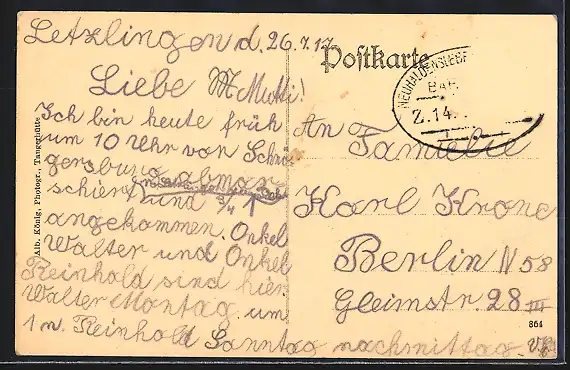 Letzlingen d. 26.7.17
Liebe Mutti!
Ich bin heute früh
um 10 Uhr von Schrö
gersburg abmar
schiert und 3/4 1
angekommen. Onkel
Walter und Onkel
Reinhold sind hier
Walter Montag um
1 n. Reinhold Sonntag nachmittag.
Postkarte
NEUHALDENSLEBE
BAH
Z.14
An Familie
Karl Krone
Berlin N 58
Gleimstr. 28 III
864
Alb. König, Photogr., Tangerhütte